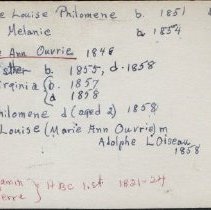 Louise Philomene b. 1851
Melanie b. 1854
Ann Ouvrie 1846
b. 1855, d. 1858
irginia { b. 1857
d 1858
hilomene d (aged 2) 1858
Louise (Marie Ann Ouvrie) m
Adolphe L Oiseau
1858
amin } HBC list 1821-24
erre